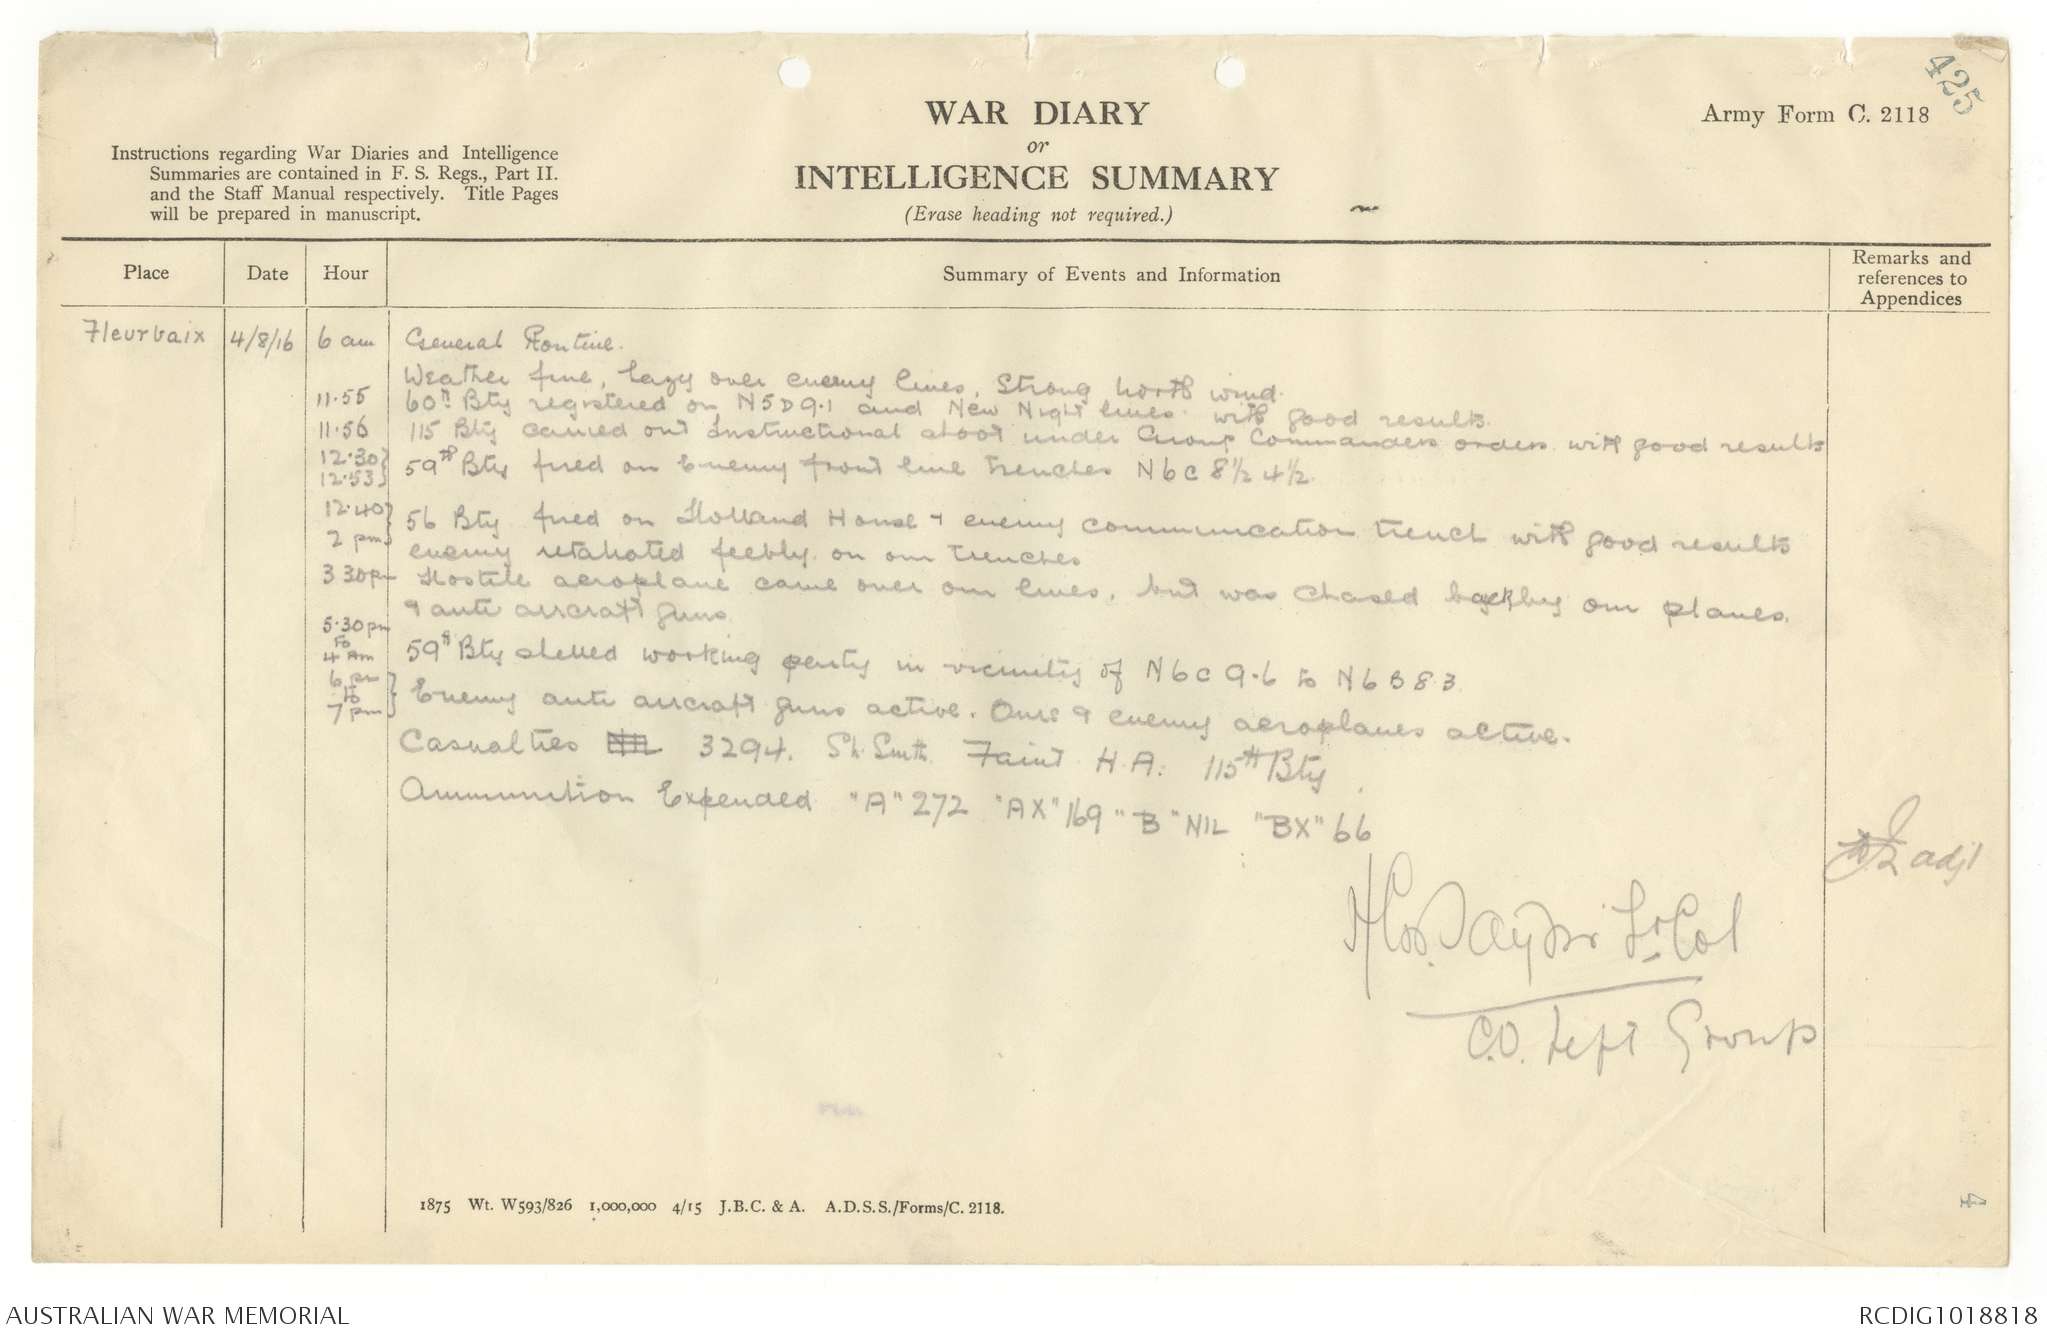 425
Army Form C. 2118
WAR DIARY
or
INTELLIGENCE SUMMARY
(Erase heading not required.)
Instructions regarding War Diaries and Intelligence
Summaries are contained in F. S. Regs., Part II.
and the Staff Manual respectively. Title Pages
will be prepared in manuscript.
Place Date Hour Summary of Events and Information Remarks and references to Appendices
Fleurbaix 4/8/16 6 am General Routine.
Weather fine, hazy over enemy lines, strong north wind.
11.55 60th Bty registered on N5D9.1 and New Night lines with good results.
11.56 115 Bty carried out Instructional shoot under Group Commanders orders with good results
12.30 12.53 } 59th Bty fired on Enemy front line trenches N6C 8½ 4½.
12.40 2 pm } 56 Bty fired on Holland House & enemy communication trench with good results
enemy retaliated feebly on our trenches
3 30pm Hostile aeroplane came over our lines, but was chased back by our planes.
& anti aircraft guns
5.30pm to 4 Am 59th Bty shelled working party in vicinity of N6C9.6 to N6B8.3.
6 pm to 7 pm } Enemy anti aircraft guns active. Ours & enemy aeroplanes active.
Casualties Nil 3294. Sh. Smith Faint H.A. 115th Bty
Ammunition Expended "A" 272 "AX" 169 "B" NIL "BX" 66
adjt
Lt Col
C.O. Left Group
1875 Wt. W593/826 1,000,000 4/15 J.B.C. & A. A.D.S.S./Forms/C. 2118.
4
AUSTRALIAN WAR MEMORIAL
RCDIG1018818